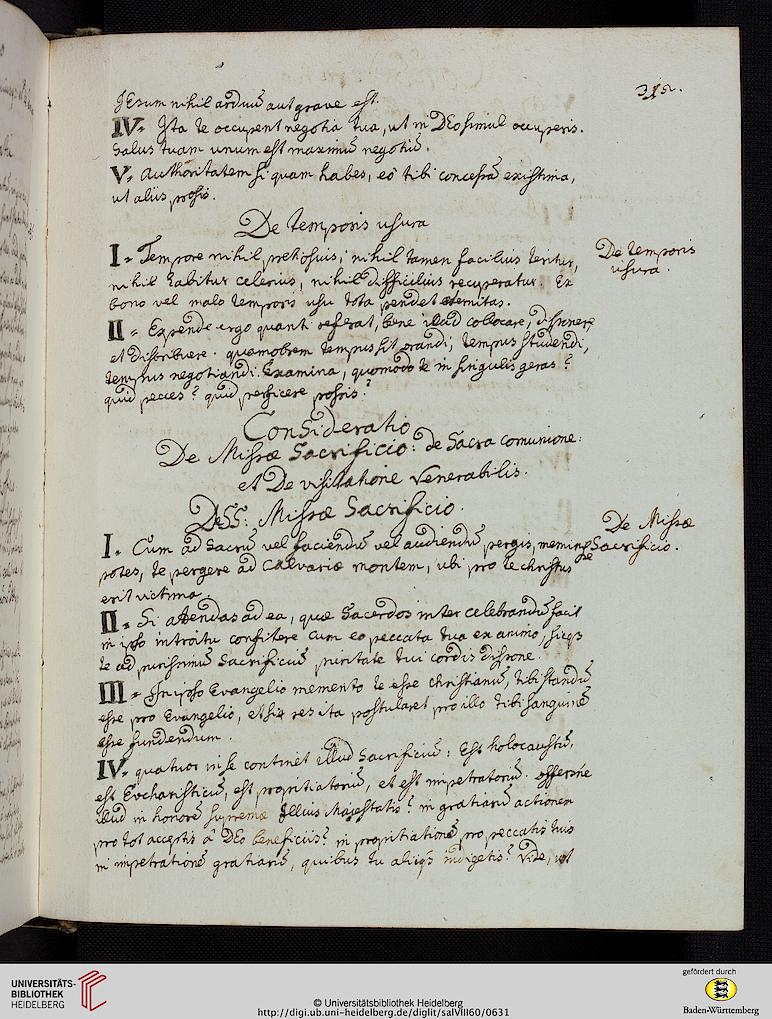 312.
JEsum nihil arduū aut grave est.
IV. Ita te occupent negotia tua, ut in DEo simul occuperis.
Salus tuam unum est maximū negotiū.
V. Authoritatem si quam habes, eō tibi concessā existima,
ut aliis prosis.
De temporis usura
I. Tempore nihil pretiosius, nihil tamen facilius teritur,
De temporis
usura.
nihil labitur celerius, nihil difficilius recuperatur. Ex
bono vel malo temporis usu tota pendet aeternitas.
II. Expende ergo quanti referat, bene illud collocare, disponere
et distribuere. quamobrem tempus sit orandi, tempus studendi,
tempus negotiandi. Examina, quomodo te in singulis geras?
quid pecces? quid perficere possis?
Consideratio
De Missæ Sacrificio: de Sacra comunione:
et De visitatione Venerabilis.
De SS: Missæ Sacrificio.
De Missæ
Sacrificio.
I. Cum ad Sacrū vel faciendū vel audiendū pergis, meminisse
potes, te pergere ad Calvariæ montem, ubi pro te christus
erit victima.
II. Si attendas ad ea, quæ Sacerdos inter celebrandū facit
in ipso introitu confitere cum eo peccata tua ex animo, sicqs
te ad purissimū Sacrificiū puritate tui cordis dispone.
III. In ipso Evangelio memento te esse christianū, tibi standū
esse pro Evangelio, etsi res ita postularet pro illo tibi sanguinē
esse fundendum.
IV. quatuor in se continet illud Sacrificiū: Est holocaustū,
est Eucharisticū, est propitiatoriū, et est impetratoriū. offersne
illud in honorē supremæ Illius Majestatis? in gratiarū actionem
pro tot acceptis â DEo beneficiis? in propitiationē pro peccatis tuis
in impetrationē gratiarū, quibus tu aliiqs indigetis? Vide, ut
UNIVERSITÄTS-
BIBLIOTHEK
HEIDELBERG
© Universitätsbibliothek Heidelberg
http://digi.ub.uni-heidelberg.de/diglit/salVIII60/0631
gefördert durch
Baden-Württemberg